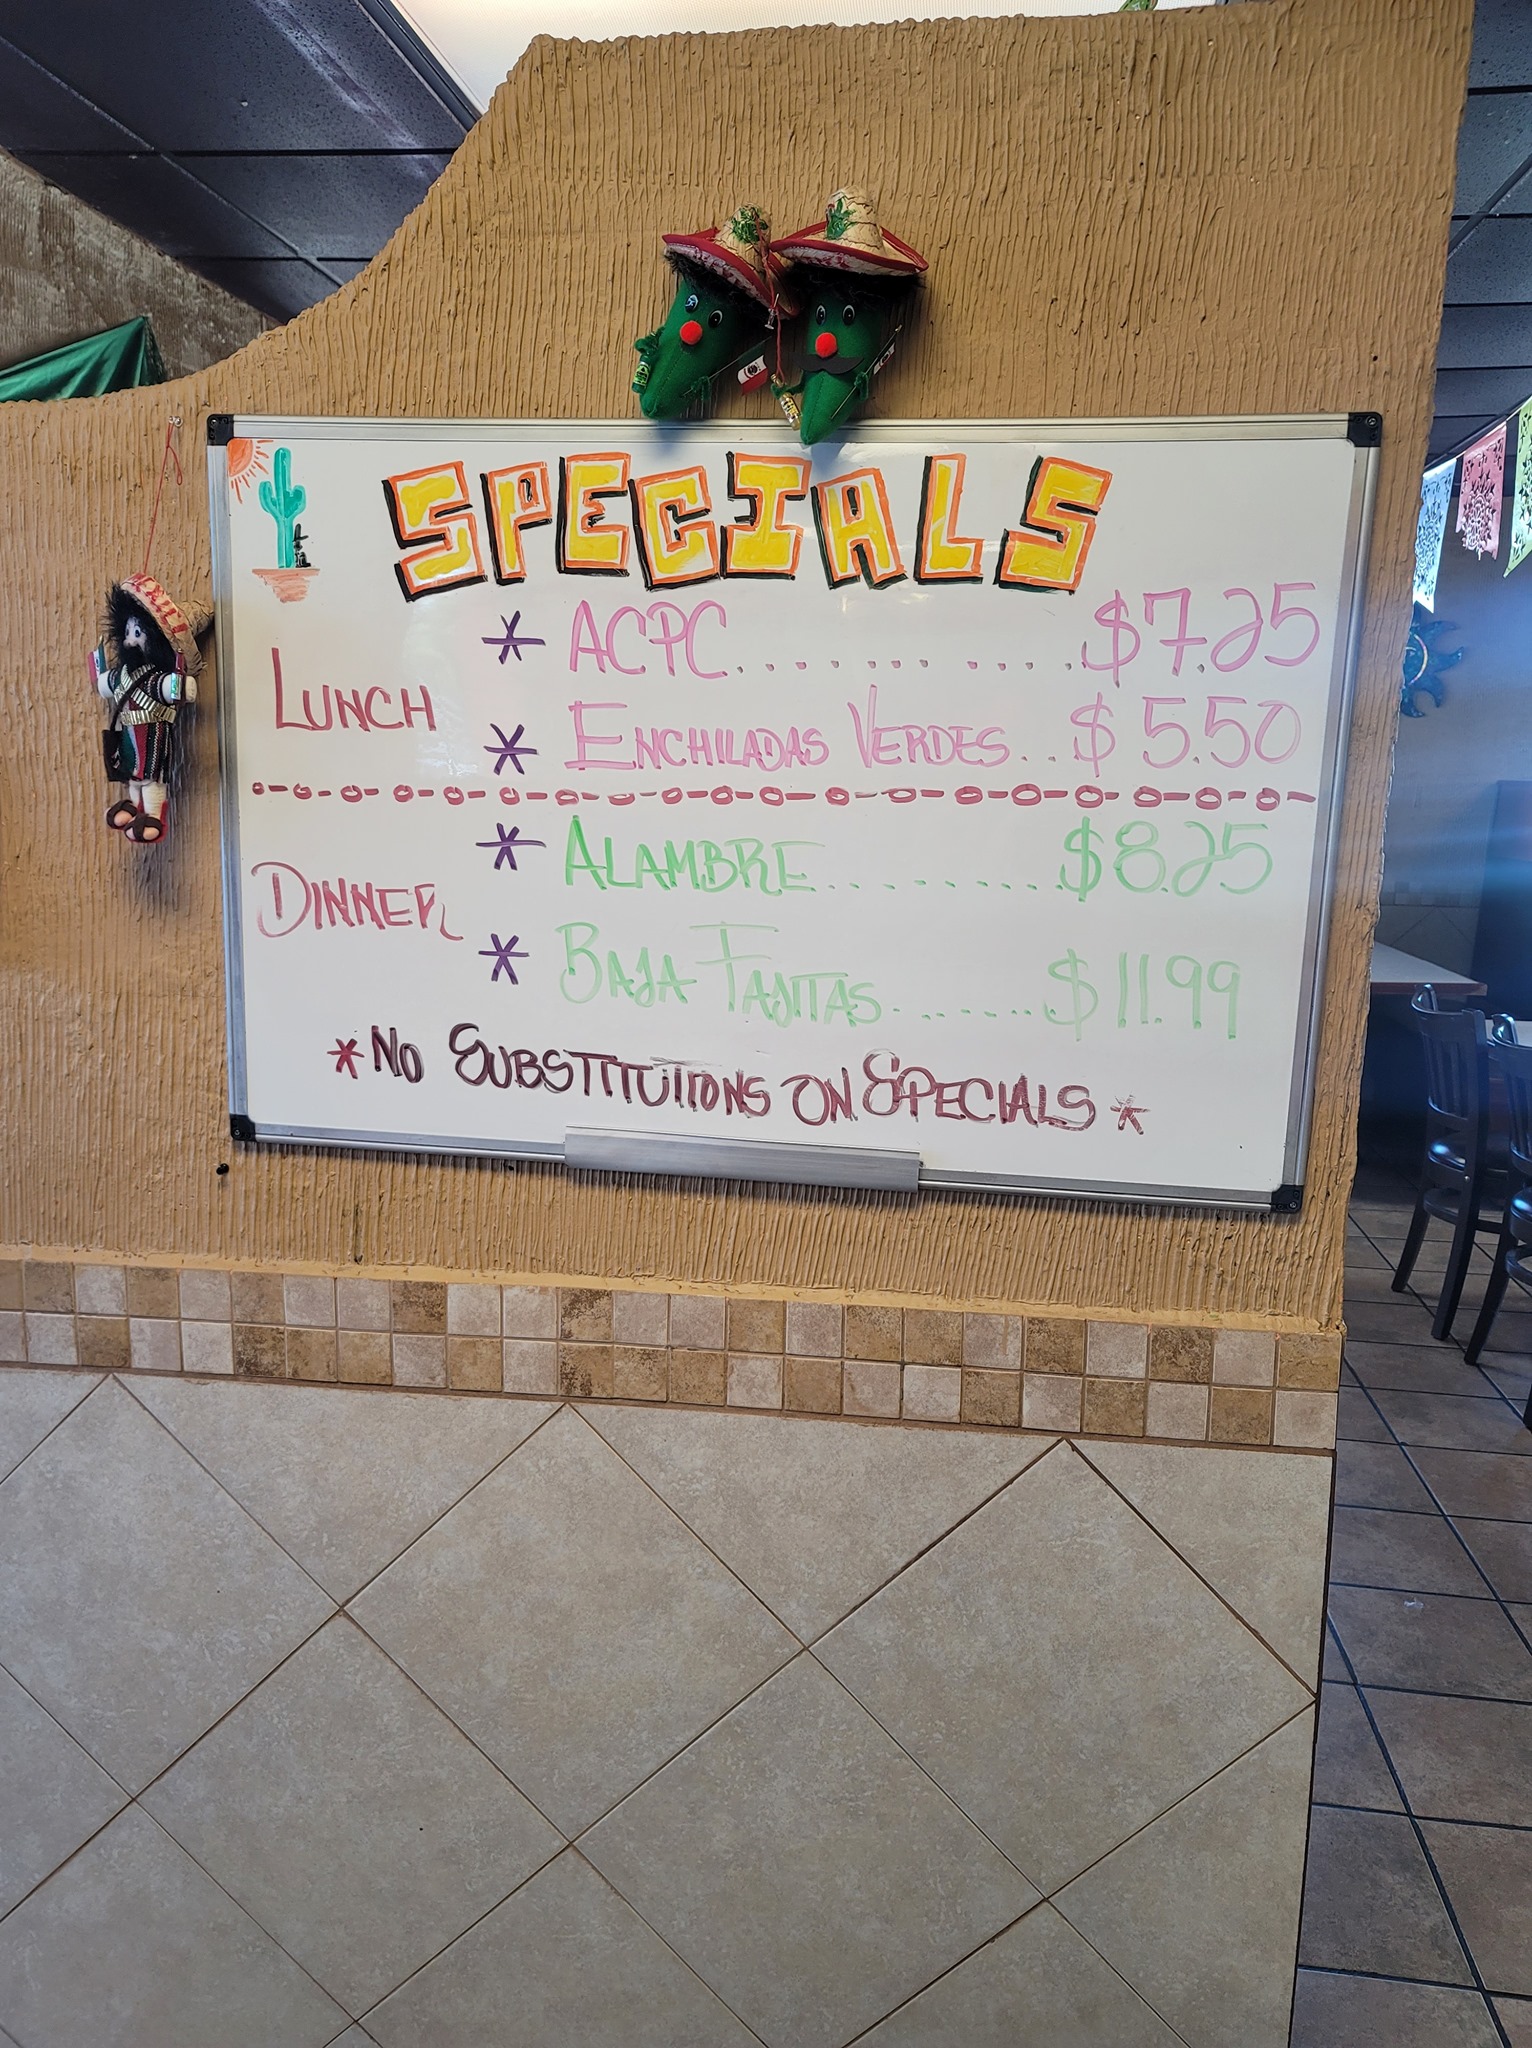 SPECIALS
LUNCH
* ACPC.............$7.25
* ENCHILADAS VERDES...$5.50
DINNER
* ALAMBRE..........$8.25
* BAJA FAJITAS........$11.99
*NO SUBSTITUTIONS ON SPECIALS*